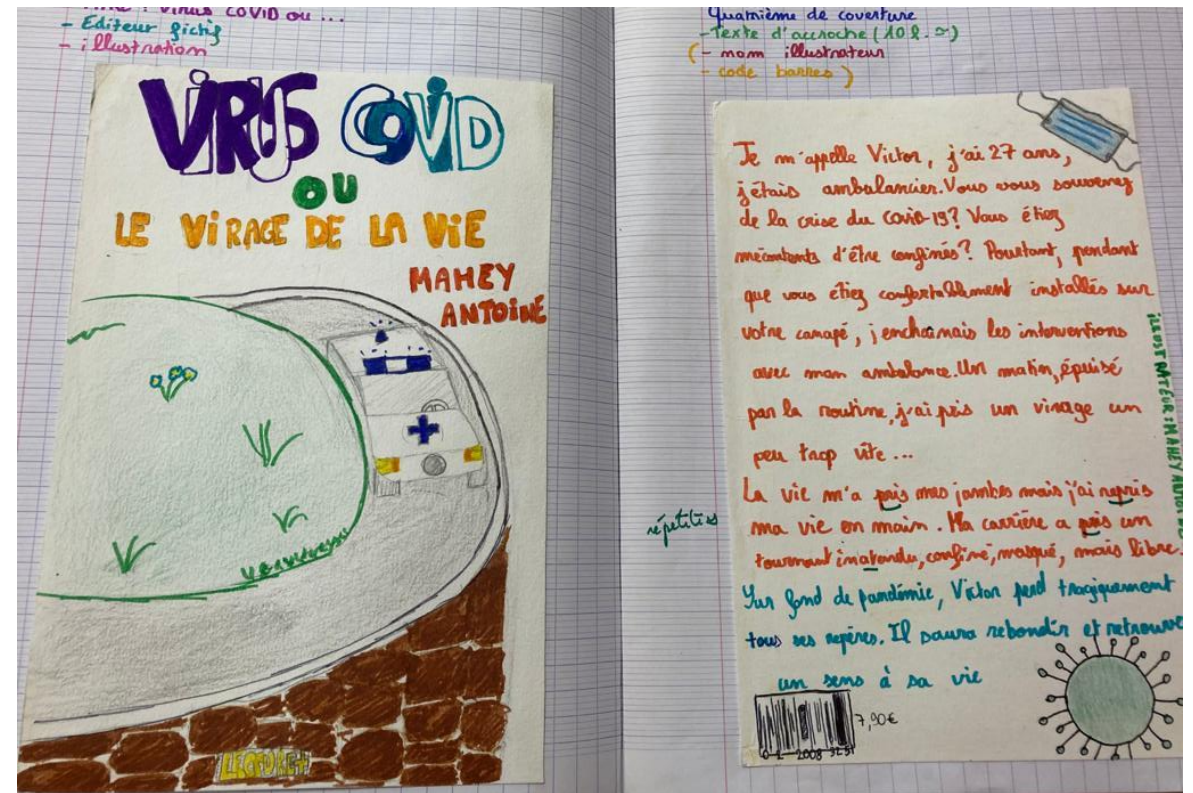 : Virus COVID ou ...
- Editeur fictif
- illustration
VIRUS COVID
OU
LE ViRAGE DE LA ViE
MAHEY
ANTOiNE
LECTURE+
Quatrième de couverture
- Texte d'accroche (10 l. ~)
(- nom illustrateur
- code barres)
Je m'appelle Victor, j'ai 27 ans,
j'étais ambalancier. Vous vous souvenez
de la crise du covid-19? Vous étiez
mécontents d'être confinés? Pourtant, pendant
que vous étiez confortablement installés sur
votre canapé, j'enchaînais les interventions
avec mon ambulance. Un matin, épuisé
par la routine, j'ai pris un virage un
peu trop vite ...
La vie m'a pris mes jambes mais j'ai repris
ma vie en main. Ma carrière a pris un
tournant inatendu, confiné, masqué, mais libre.
Sur fond de pandémie, Victor perd tragiquement
tous ses repères. Il saura rebondir et retrouver
un sens à sa vie
répétitions
iLLUSTRATEUR: MAHEY
7,90€
2008